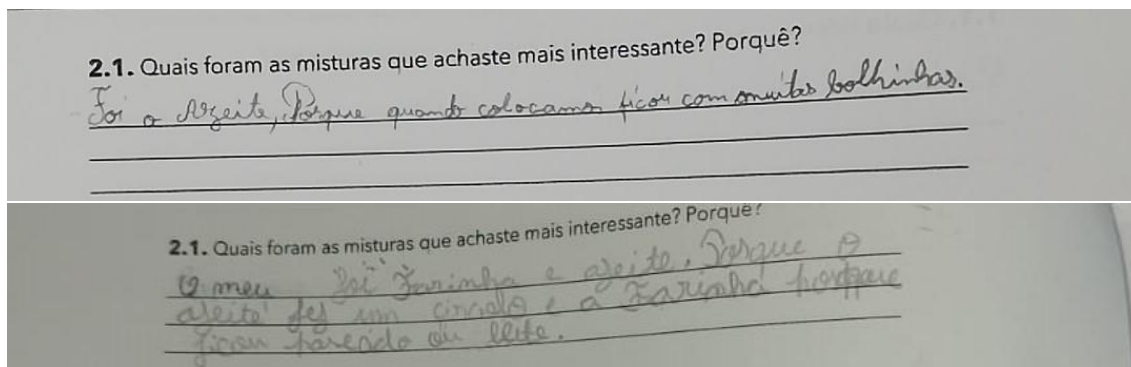 2.1. Quais foram as misturas que achaste mais interessante? Porquê?
Foi o Azeite, Porque quando colocamos ficou com muitas bolhinhas.
2.1. Quais foram as misturas que achaste mais interessante? Porquê?
O meu foi Farinha e azeite. Porque o
azeite fes um circulo e a Farinha porque
ficou parecido ou leite.